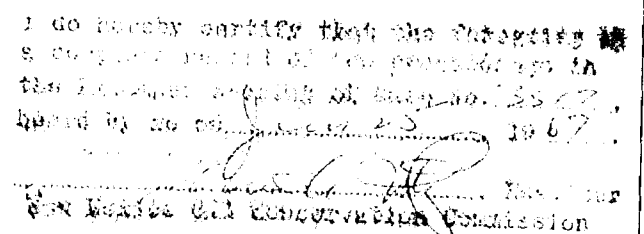 I do hereby certify that the foregoing is
a complete record of the proceedings in
the Examiner hearing of Case No.
heard by me on 19 67.
Examiner
New Mexico Oil Conservation Commission